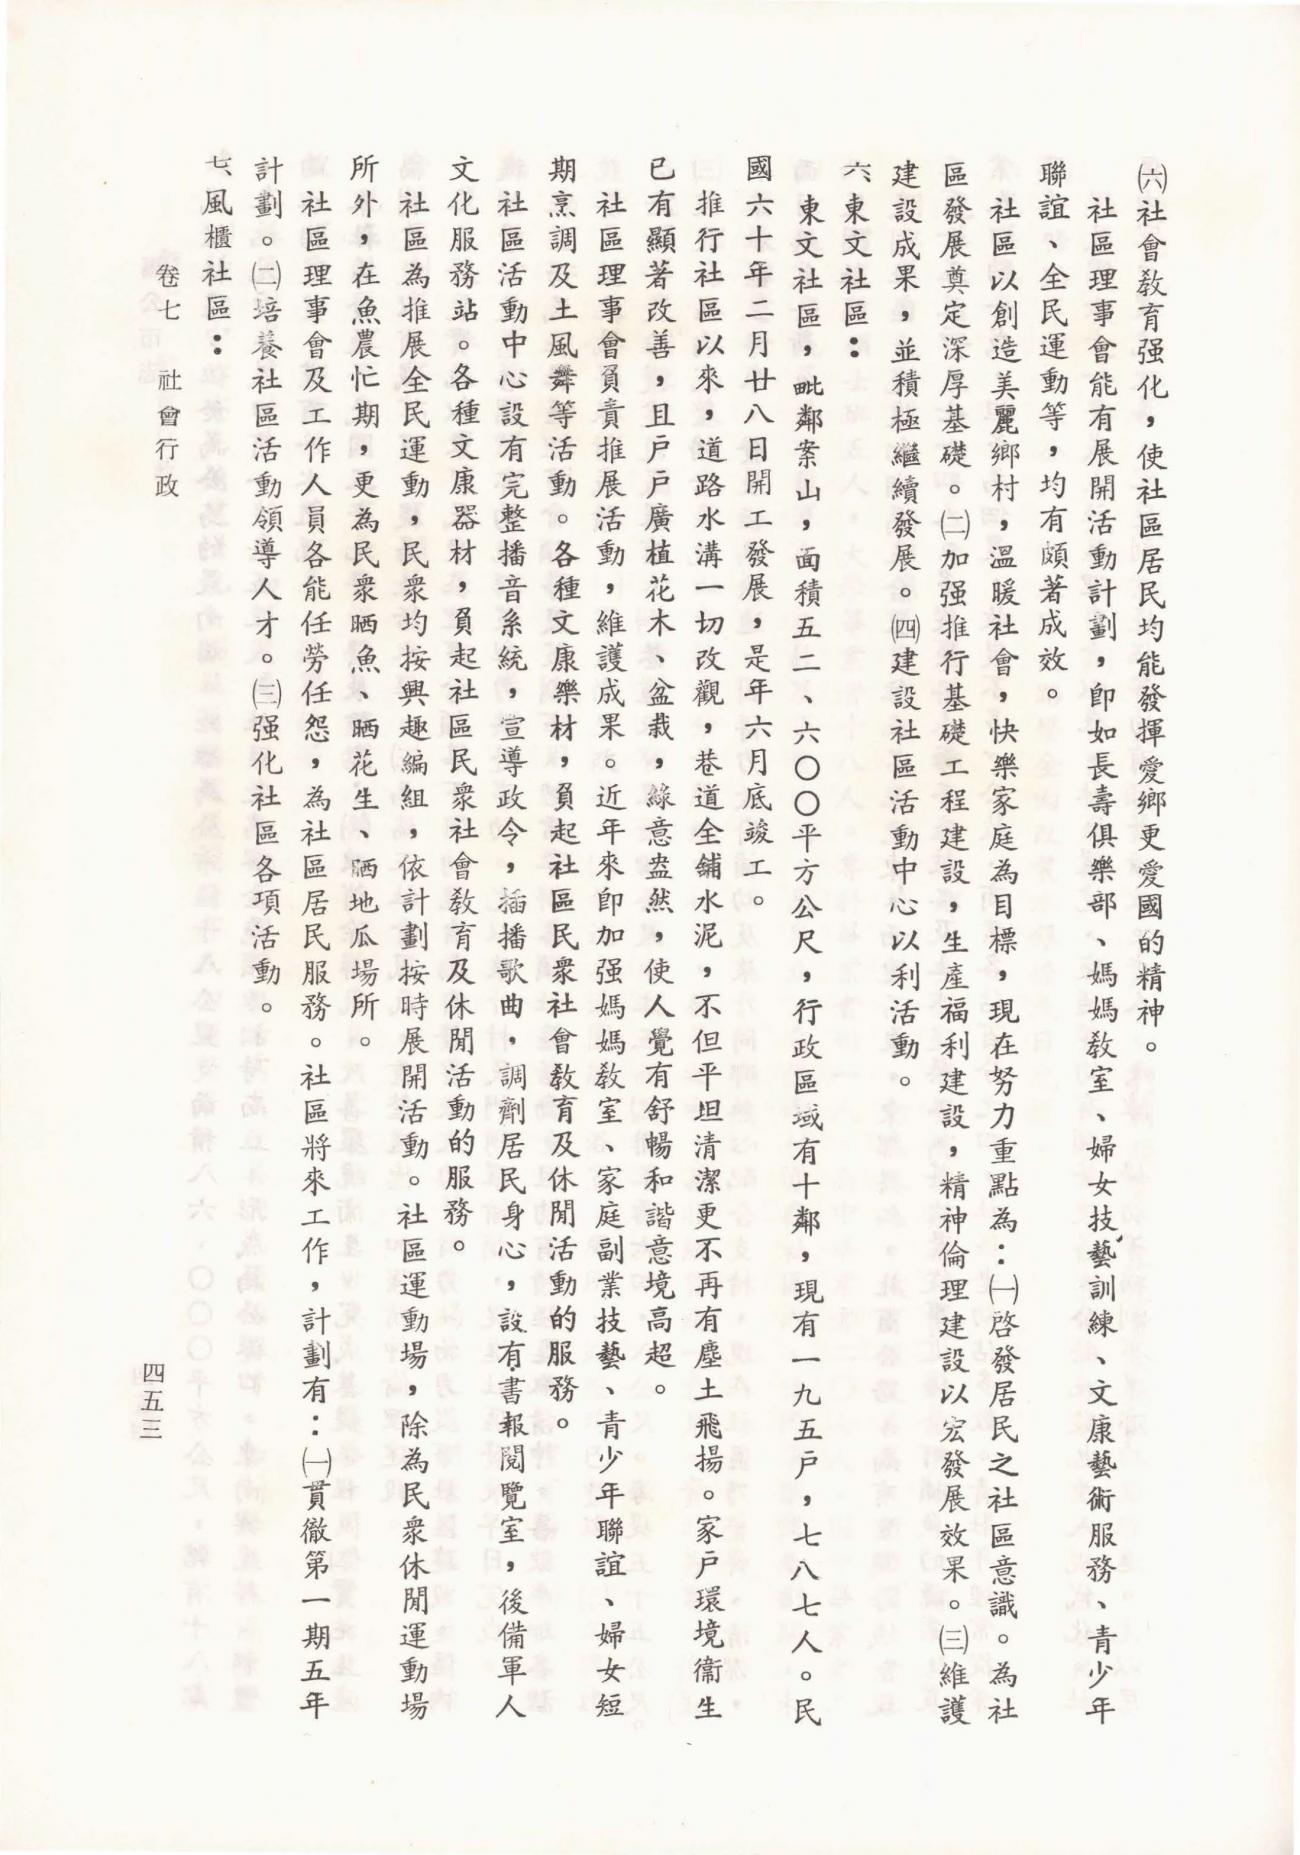 ㈥社會教育强化，使社區居民均能發揮愛鄉更愛國的精神。
社區理事會能有展開活動計劃，卽如長壽俱樂部、媽媽教室、婦女技藝訓練、文康藝術服務、青少年
聯誼、全民運動等，均有頗著成效。
社區以創造美麗鄉村，溫暖社會，快樂家庭為目標，現在努力重點為：㈠啓發居民之社區意識。為社
區發展奠定深厚基礎。㈡加强推行基礎工程建設，生產福利建設，精神倫理建設以宏發展效果。㈢維護
建設成果，並積極繼續發展。㈣建設社區活動中心以利活動。
六、東文社區：
東文社區，毗鄰案山，面積五二、六〇〇平方公尺，行政區域有十鄰，現有一九五戶，七八七人。民
國六十年二月廿八日開工發展，是年六月底竣工。
推行社區以來，道路水溝一切改觀，巷道全舖水泥，不但平坦清潔更不再有塵土飛揚。家戶環境衞生
已有顯著改善，且戶戶廣植花木、盆栽，綠意盎然，使人覺有舒暢和諧意境高超。
社區理事會負責推展活動，維護成果。近年來卽加强媽媽教室、家庭副業技藝、青少年聯誼、婦女短
期烹調及土風舞等活動。各種文康樂材，負起社區民衆社會教育及休閒活動的服務。
社區活動中心設有完整播音系統，宣導政令，插播歌曲，調劑居民身心，設有書報閱覽室，後備軍人
文化服務站。各種文康器材，負起社區民衆社會教育及休閒活動的服務。
社區為推展全民運動，民衆均按興趣編組，依計劃按時展開活動。社區運動場，除為民衆休閒運動場
所外，在魚農忙期，更為民衆晒魚、晒花生、晒地瓜場所。
社區理事會及工作人員各能任勞任怨，為社區居民服務。社區將來工作，計劃有：㈠貫徹第一期五年
計劃。㈡培養社區活動領導人才。㈢强化社區各項活動。
七、風櫃社區：
卷七　社會行政
四五三